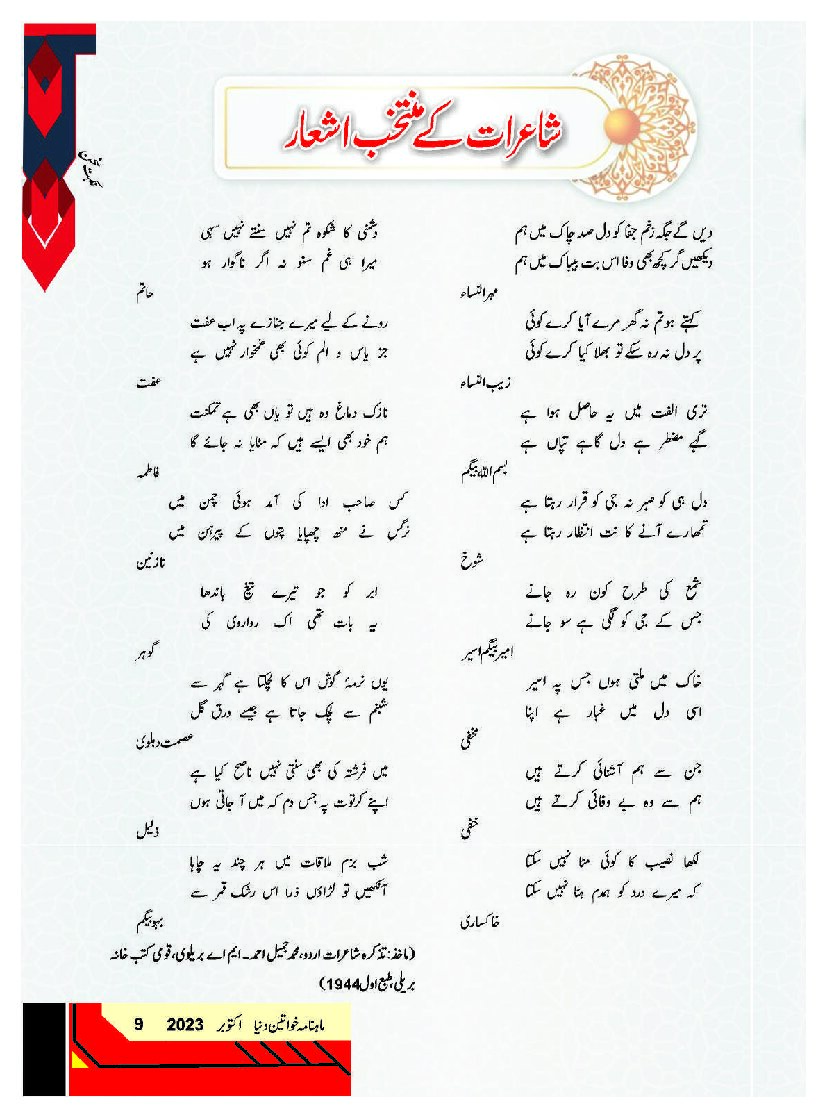 شاعرات کے منتخب اشعار
نکہت سخن
دیں گے جگہ زخم جفا کو دل صد چاک میں ہم
دیکھیں گر کچھ بھی وفا اس بت بیباک میں ہم
مہر النساء
کہتے ہو تم نہ گھر مرے آیا کرے کوئی
پر دل نہ رہ سکے تو بھلا کیا کرے کوئی
زیب النساء
تری الفت میں یہ حاصل ہوا ہے
گہے مضطر ہے دل گاہے تپاں ہے
بسم اللہ بیگم
دل ہی کو صبر نہ جی کو قرار رہتا ہے
تمھارے آنے کا نت انتظار رہتا ہے
شوخ
شمع کی طرح کون رہ جانے
جس کے جی کو لگی ہے سو جانے
امیر بیگم اسیر
خاک میں ملتی ہوں جس پہ اسیر
اسی دل میں غبار ہے اپنا
مخفی
جن سے ہم آشنائی کرتے ہیں
ہم سے وہ بے وفائی کرتے ہیں
خفی
لکھا نصیب کا کوئی مٹا نہیں سکتا
کہ میرے درد کو ہمدم بٹا نہیں سکتا
خاکساری
دشمنی کا شکوہ تم نہیں سنتے نہیں سہی
میرا ہی غم سنو نہ اگر ناگوار ہو
حاتم
رونے کے لیے میرے جنازے پہ اب عفت
جز یاس و الم کوئی بھی غمخوار نہیں ہے
عفت
نازک دماغ وہ ہیں تو یاں بھی ہے تمکنت
ہم خود بھی ایسے ہیں کہ منایا نہ جائے گا
فاطمہ
کس صاحب ادا کی آمد ہوئی چمن میں
نرگس نے منھ چھپایا پتوں کے پیرہن میں
نازنین
ابر کو جو تیرے تیغ باندھا
یہ بات تھی اک رواروی کی
گوہر
یوں نرمۂ گوش اس کا لچکتا ہے گہر سے
شبنم سے لچک جاتا ہے جیسے ورق گل
عصمت دہلوی
میں فرشتہ کی بھی سنتی نہیں ناصح کیا ہے
اپنے کرتوت پہ جس دم کہ میں آ جاتی ہوں
دلیل
شب بزم ملاقات میں ہر چند یہ چاہا
آنکھیں تو لڑاؤں ذرا اس رشک قمر سے
بہو بیگم
(ماخذ: تذکرہ شاعرات اردو، محمد جمیل احمد۔ ایم اے بریلوی، قومی کتب خانہ
بریلی، طبع اول 1944)
ماہنامہ خواتین دنیا اکتوبر 2023 9